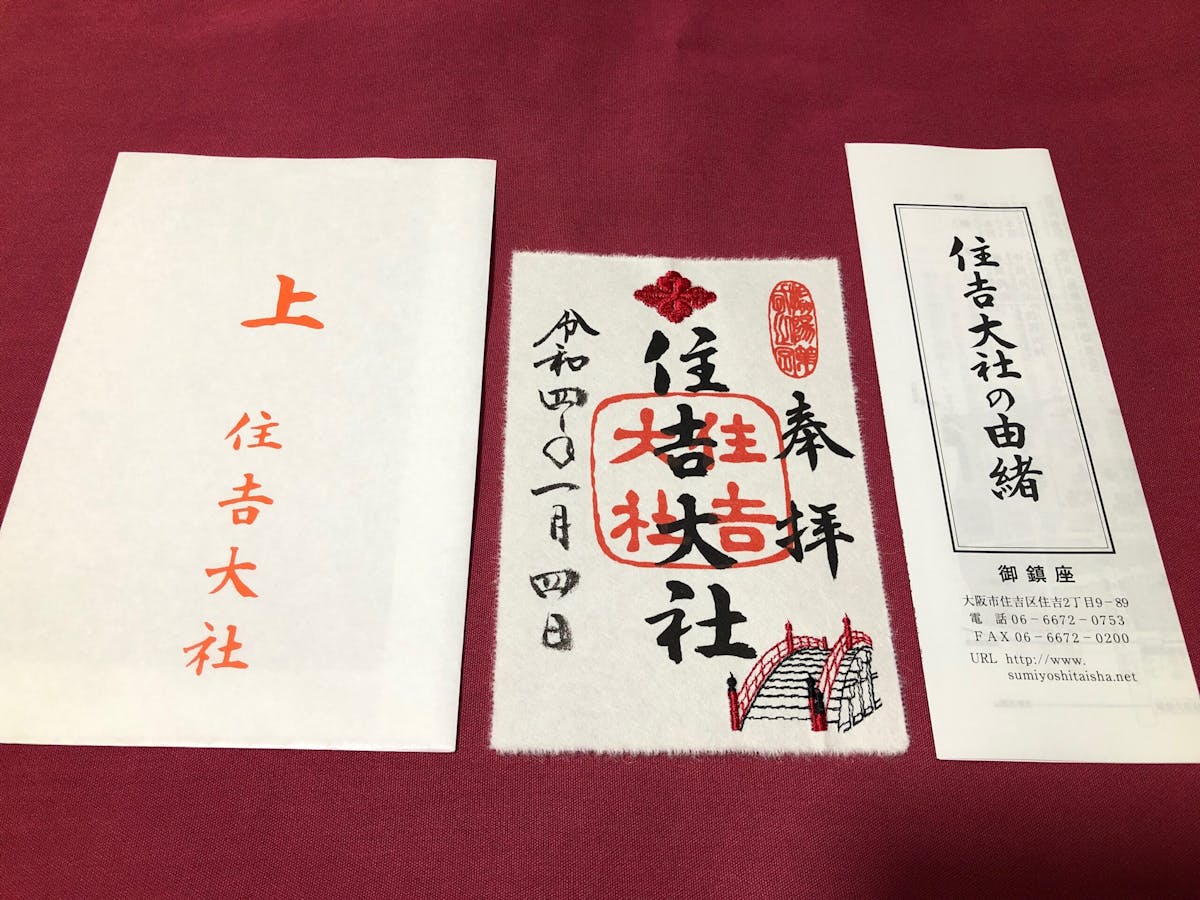 上
住吉大社
奉拝
住吉大社
住吉大社
令和四年一月四日
住吉大社の由緒
御鎮座
大阪市住吉区住吉2丁目9-89
電話 06-6672-0753
FAX 06-6672-0200
URL http://www.
sumiyoshitaisha.net